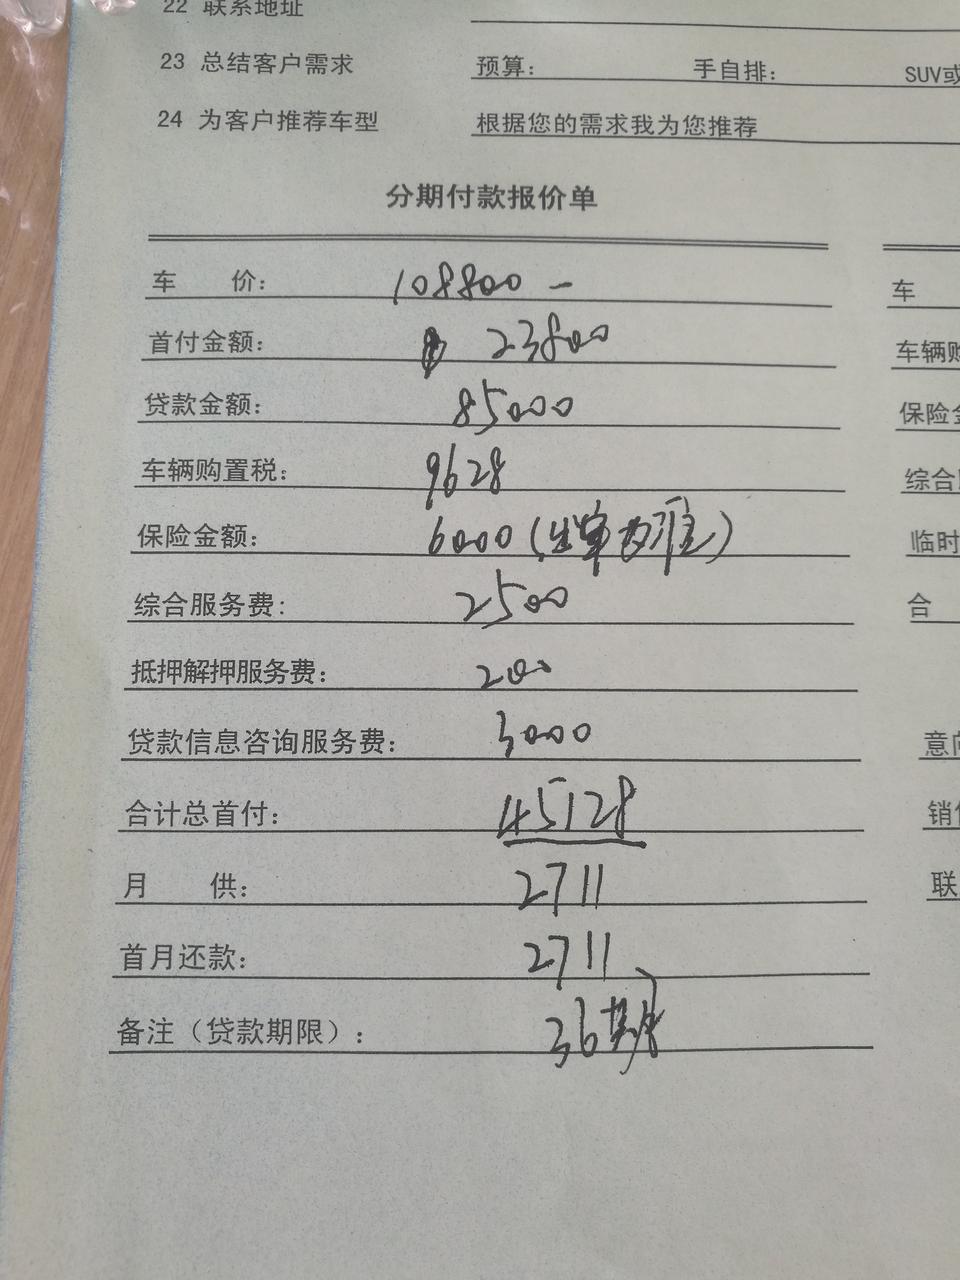 22 联系地址
23 总结客户需求 预算： 手自排： SUV或
24 为客户推荐车型 根据您的需求我为您推荐
分期付款报价单
车 价： 108800 - 车
首付金额： 23800 车辆购
贷款金额： 85000 保险金
车辆购置税： 9628 综合
保险金额： 6000（出单为准） 临时
综合服务费： 2500 合
抵押解押服务费： 200
贷款信息咨询服务费： 3000 意向
合计总首付： 45128 销售
月 供： 2711 联
首月还款： 2711
备注（贷款期限）： 36期